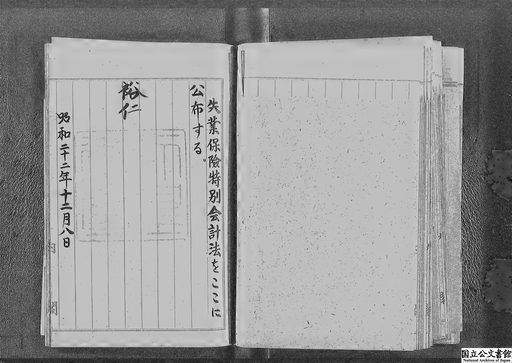 失業保險特別会計法をここに
公布する。
裕仁
昭和二十二年十二月八日
内閣
国立公文書館
National Archives of Japan